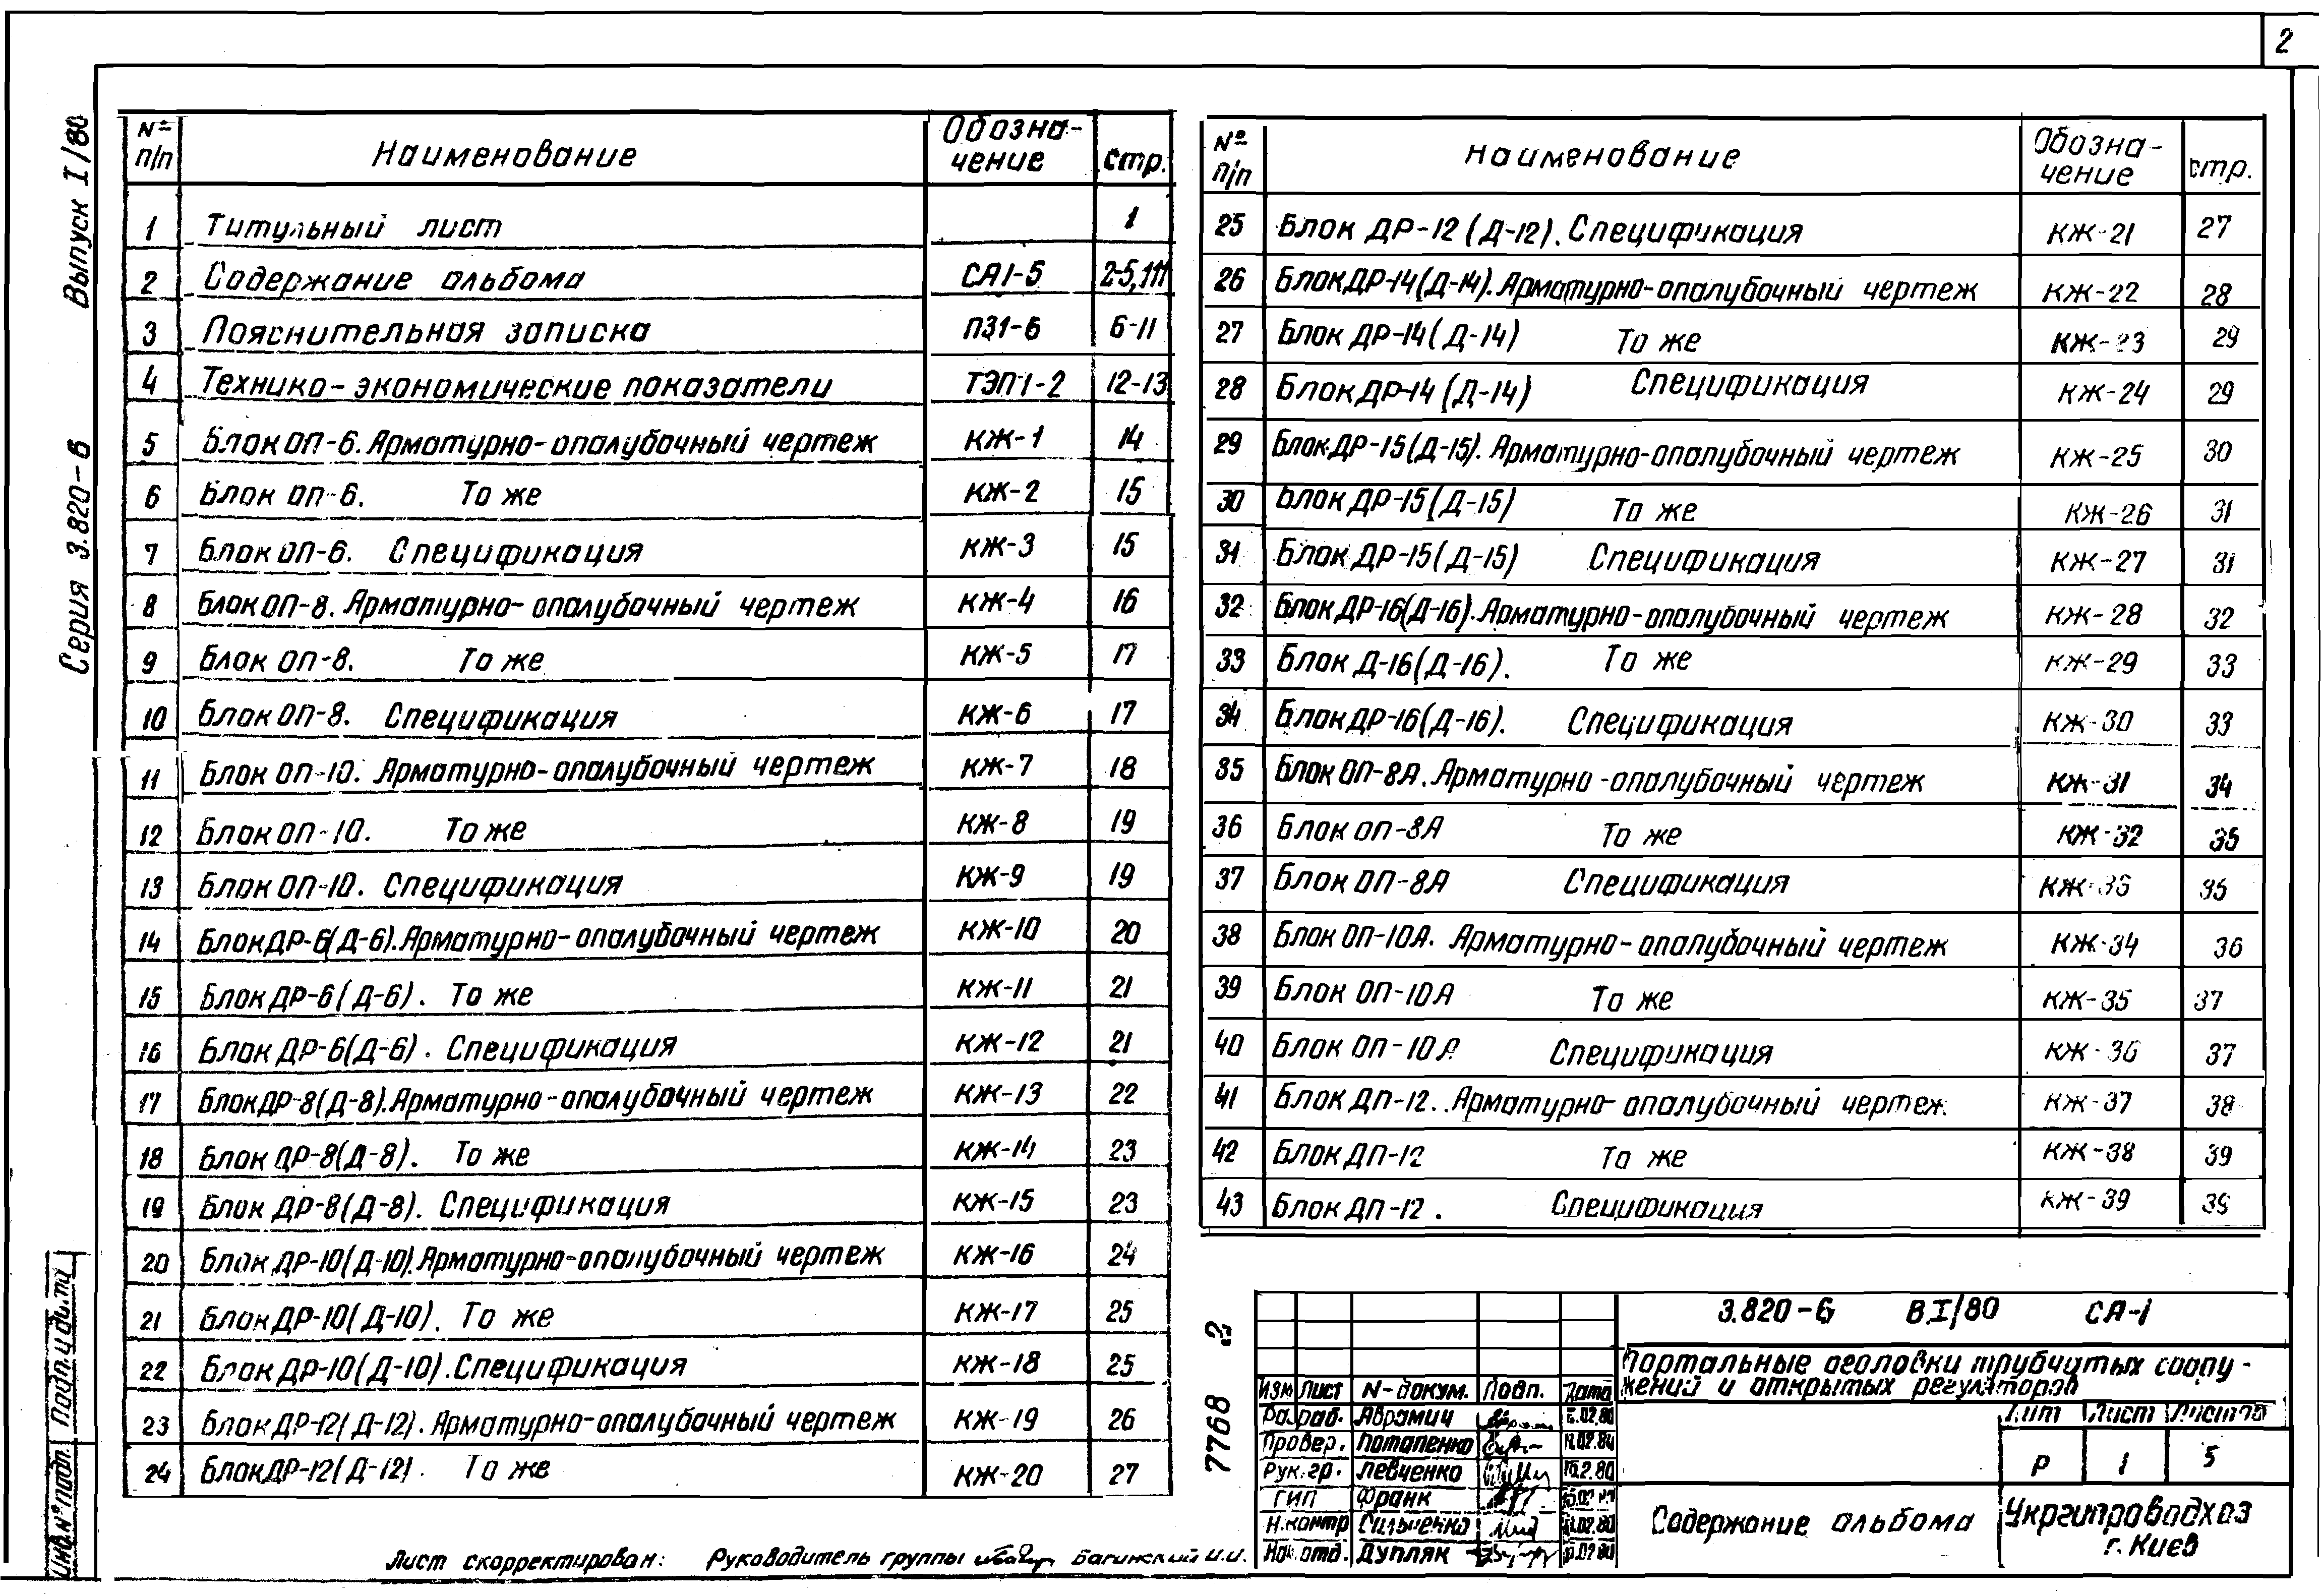 2
Серия 3.820-6 Выпуск I/80
№ п/п Наименование Обозна- чение стр.
1 Титульный лист 1
2 Содержание альбома СА1-5 2-5,111
3 Пояснительная записка ПЗ1-6 6-11
4 Технико-экономические показатели ТЭП1-2 12-13
5 Блок ОП-6. Арматурно-опалубочный чертеж КЖ-1 14
6 Блок ОП-6. То же КЖ-2 15
7 Блок ОП-6. Спецификация КЖ-3 15
8 Блок ОП-8. Арматурно-опалубочный чертеж КЖ-4 16
9 Блок ОП-8. То же КЖ-5 17
10 Блок ОП-8. Спецификация КЖ-6 17
11 Блок ОП-10. Арматурно-опалубочный чертеж КЖ-7 18
12 Блок ОП-10. То же КЖ-8 19
13 Блок ОП-10. Спецификация КЖ-9 19
14 Блок ДР-6(Д-6). Арматурно-опалубочный чертеж КЖ-10 20
15 Блок ДР-6(Д-6). То же КЖ-11 21
16 Блок ДР-6(Д-6). Спецификация КЖ-12 21
17 Блок ДР-8(Д-8). Арматурно-опалубочный чертеж КЖ-13 22
18 Блок ДР-8(Д-8). То же КЖ-14 23
19 Блок ДР-8(Д-8). Спецификация КЖ-15 23
20 Блок ДР-10(Д-10). Арматурно-опалубочный чертеж КЖ-16 24
21 Блок ДР-10(Д-10). То же КЖ-17 25
22 Блок ДР-10(Д-10). Спецификация КЖ-18 25
23 Блок ДР-12(Д-12). Арматурно-опалубочный чертеж КЖ-19 26
24 Блок ДР-12(Д-12). То же КЖ-20 27
№ п/п Наименование Обозна- чение стр.
25 Блок ДР-12(Д-12). Спецификация КЖ-21 27
26 Блок ДР-14(Д-14). Арматурно-опалубочный чертеж КЖ-22 28
27 Блок ДР-14(Д-14) То же КЖ-23 29
28 Блок ДР-14(Д-14) Спецификация КЖ-24 29
29 Блок ДР-15(Д-15). Арматурно-опалубочный чертеж КЖ-25 30
30 Блок ДР-15(Д-15) То же КЖ-26 31
31 Блок ДР-15(Д-15) Спецификация КЖ-27 31
32 Блок ДР-16(Д-16). Арматурно-опалубочный чертеж КЖ-28 32
33 Блок Д-16(Д-16). То же КЖ-29 33
34 Блок ДР-16(Д-16). Спецификация КЖ-30 33
35 Блок ОП-8А. Арматурно-опалубочный чертеж КЖ-31 34
36 Блок ОП-8А То же КЖ-32 35
37 Блок ОП-8А Спецификация 35
38 Блок ОП-10А. Арматурно-опалубочный чертеж КЖ-34 36
39 Блок ОП-10А То же КЖ-35 37
40 Блок ОП-10А Спецификация КЖ-36 37
41 Блок ДП-12. Арматурно-опалубочный чертеж. КЖ-37 38
42 Блок ДП-12 То же КЖ-38 39
43 Блок ДП-12. Спецификация КЖ-39 39
7768 2
3.820-6 В.I/80 СА-1
Портальные оголовки трубчатых соору-
жений и открытых регуляторов
Изм Лист N-докум. Подп. Дата
Лит Лист Листов
Р 1 5
Разраб. Абрамич
Провер. Потапенко
Рук.гр. Левченко
ГИП Франк
Н.контр Сильченко
Нач.отд. Дупляк
Содержание альбома
Укргипроводхоз
г. Киев
Инв.№ подл. Подп. и дата
Лист скорректирован: Руководитель группы Багинский И.И.